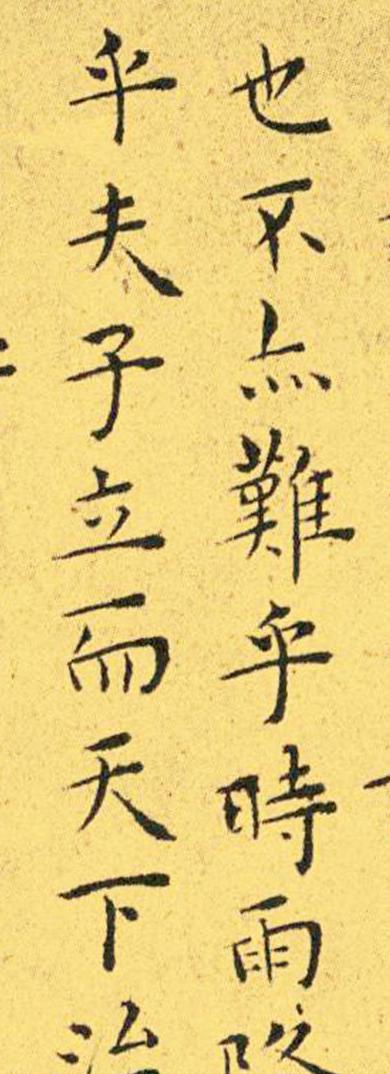 也不亦難乎時雨降
乎夫子立而天下治